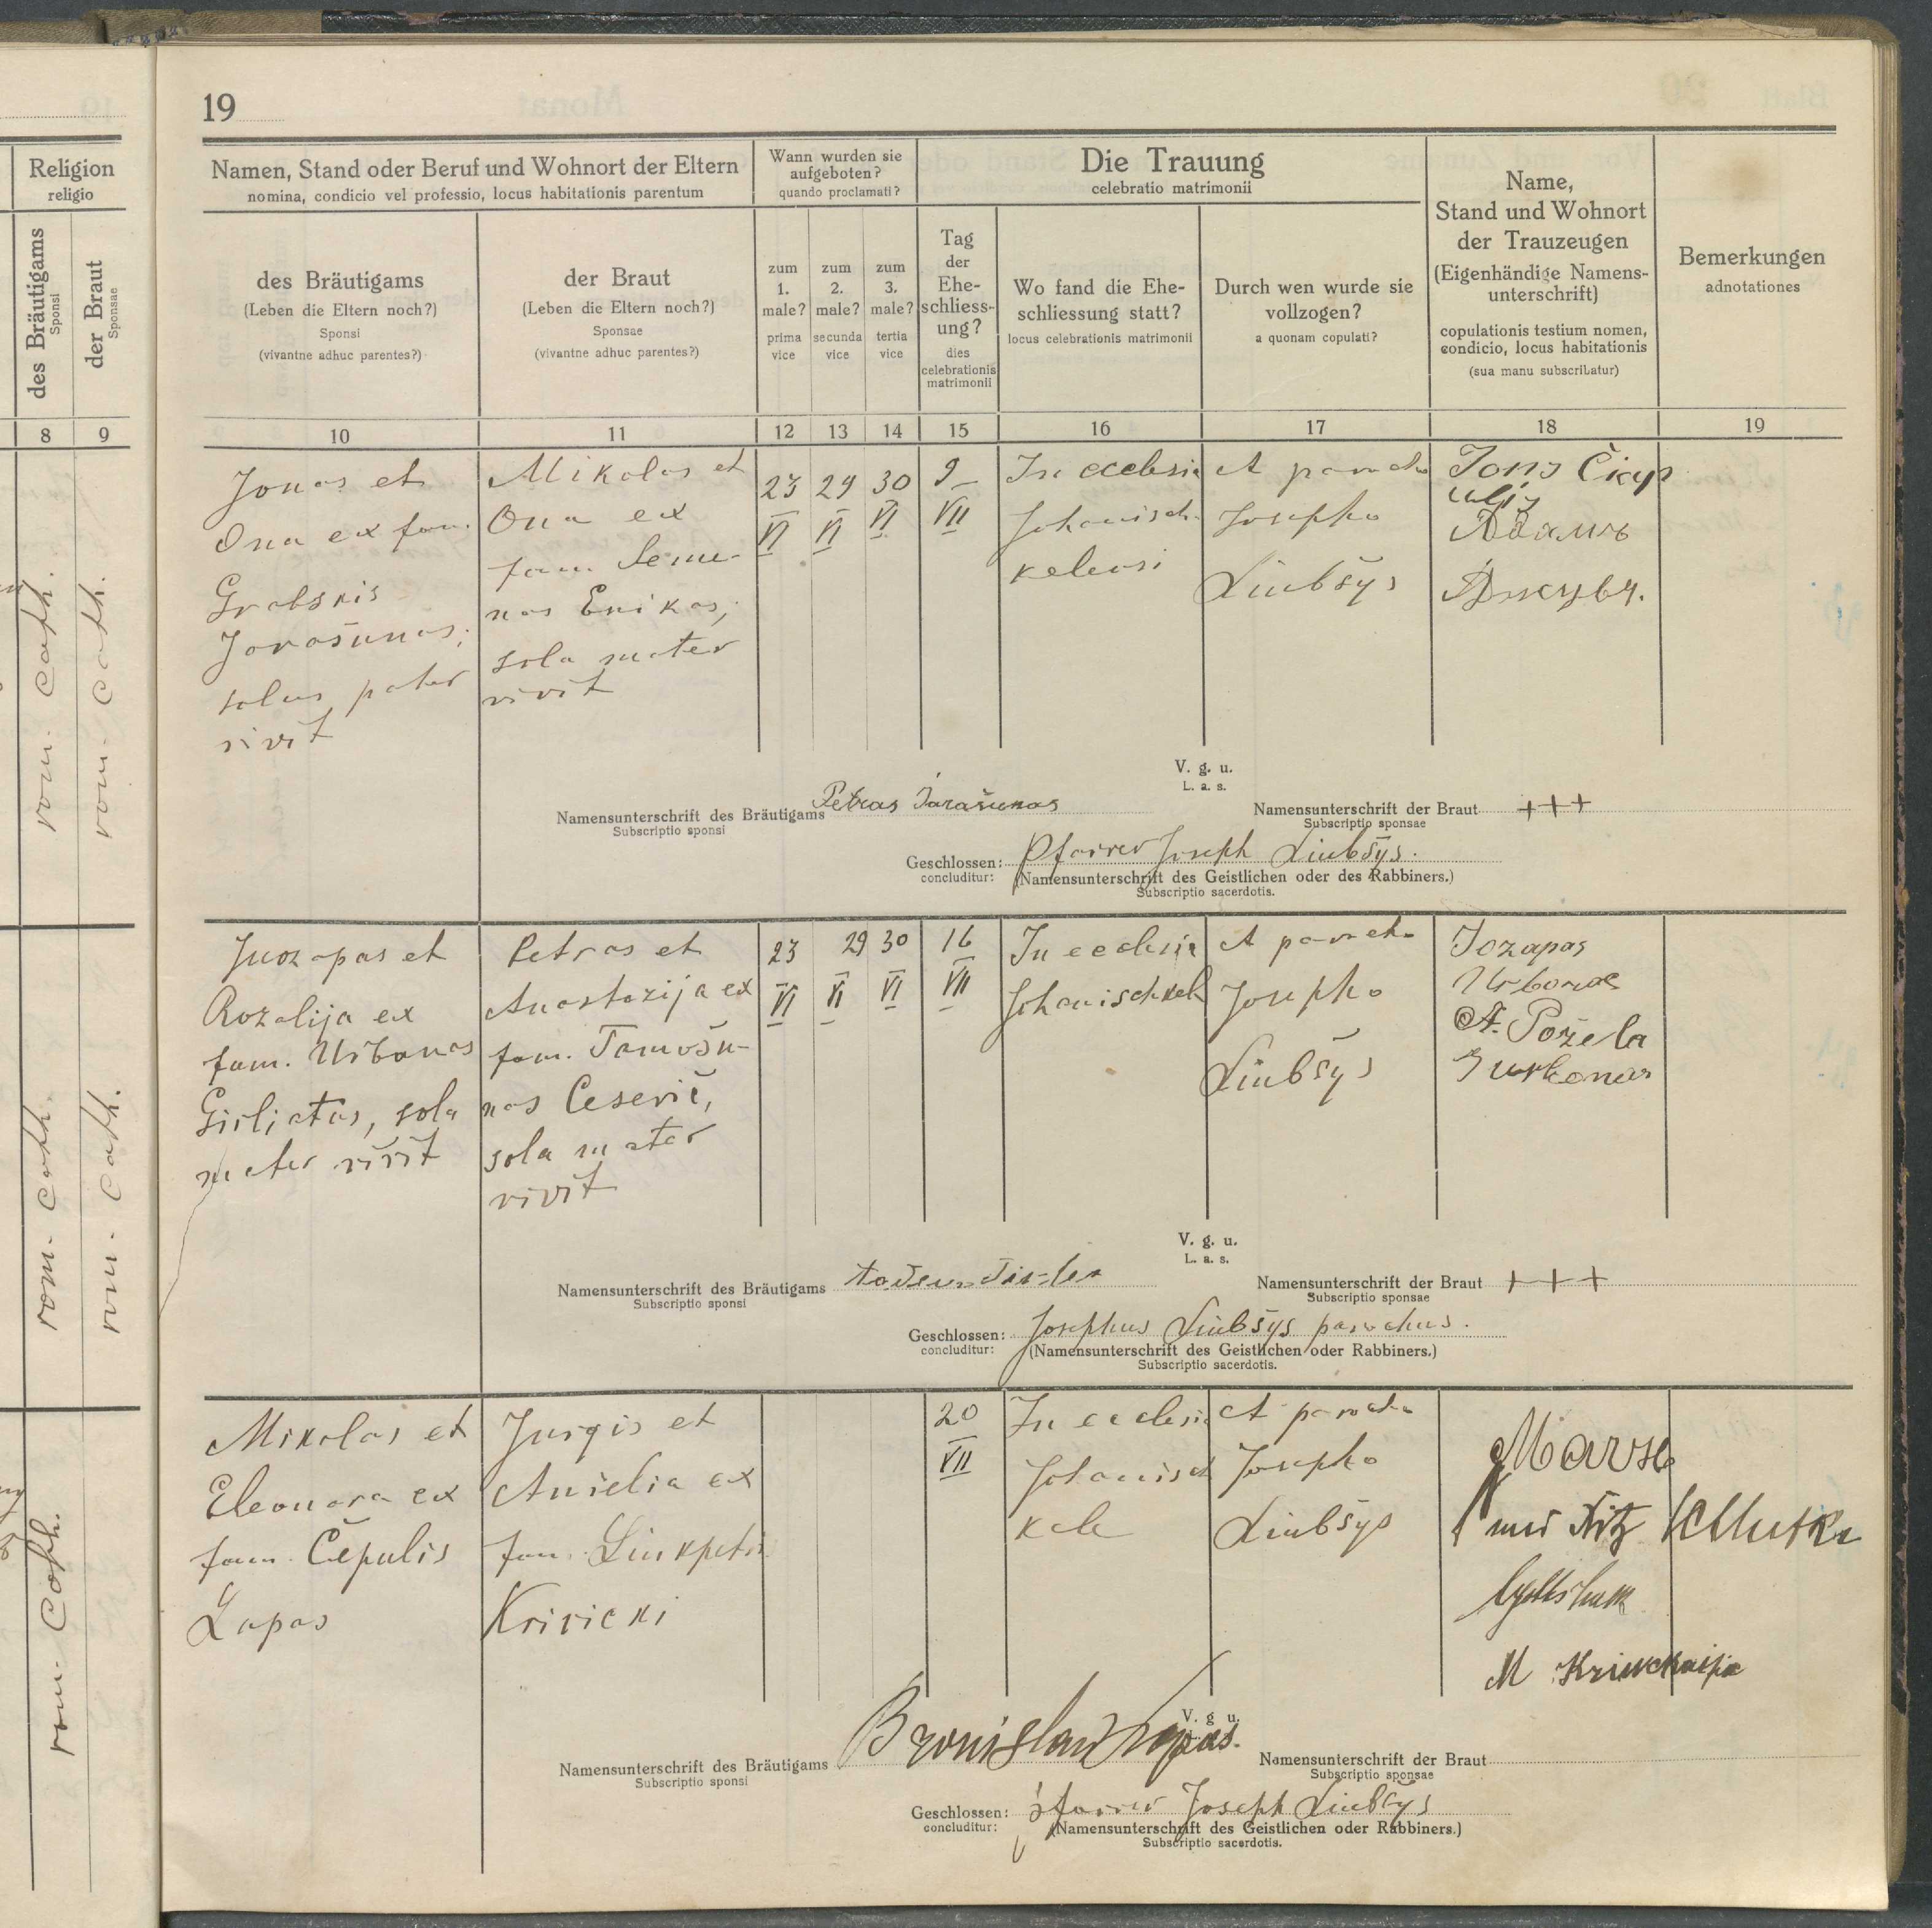 19
Religion
religio
des Bräutigams
Sponsi
der Braut
Sponsae
8
9
rom. cath.
rom. cath.
rom. cath.
rom. cath.
rom. Cath.
Namen, Stand oder Beruf und Wohnort der Eltern
nomina, condicio vel professio, locus habitationis parentum
des Bräutigams
(Leben die Eltern noch?)
Sponsi
(vivantne adhuc parentes?)
der Braut
(Leben die Eltern noch?)
Sponsae
(vivantne adhuc parentes?)
Wann wurden sie
aufgeboten?
quando proclamati?
zum
1.
male?
prima
vice
zum
2.
male?
secunda
vice
zum
3.
male?
tertia
vice
Die Trauung
celebratio matrimonii
Tag
der
Ehe-
schliess-
ung?
dies
celebrationis
matrimonii
Wo fand die Ehe-
schliessung statt?
locus celebrationis matrimonii
Durch wen wurde sie
vollzogen?
a quonam copulati?
Name,
Stand und Wohnort
der Trauzeugen
(Eigenhändige Namens-
unterschrift)
copulationis testium nomen,
condicio, locus habitationis
(sua manu subscribatur)
Bemerkungen
adnotationes
10
11
12
13
14
15
16
17
18
19
Jonas et
Ona ex fam.
Grabskis
Jarašunas;
solus pater
vivit
Mikolas et
Ona ex
fam. Seme-
nas Enikas;
sola mater
vivit
23
VI
29
VI
30
VI
9
VII
In ecclesia
Johanisch-
kelensi
A parocho
Josepho
Liubšys
Адамъ
V. g. u.
L. a. s.
Namensunterschrift des Bräutigams Petras Jarašunas
Subscriptio sponsi
Namensunterschrift der Braut +++
Subscriptio sponsae
Geschlossen: Pfarrer Joseph Liubšys.
concluditur: (Namensunterschrift des Geistlichen oder des Rabbiners.)
Subscriptio sacerdotis.
Juozapas et
Rozalija ex
fam. Urbonas
Girliatas, sola
mater vivit
Petras et
Anastazija ex
fam. Tamošu-
nas Cesevič,
sola mater
vivit
23
VI
29
VI
30
VI
16
VII
In ecclesia
Johanischkel
A parocho
Josepho
Liubšys
Jozapas
Urbonas
A. Požela
V. g. u.
L. a. s.
Namensunterschrift des Bräutigams
Subscriptio sponsi
Namensunterschrift der Braut +++
Subscriptio sponsae
Geschlossen: Josephus Liubšys parochus.
concluditur: (Namensunterschrift des Geistlichen oder Rabbiners.)
Subscriptio sacerdotis.
Mikolas et
Eleonora ex
fam. Čepulis
Lapas
Jurgis et
Anielia ex
fam.
Krivicki
20
VII
In ecclesia
Johanisch
kele
A parocho
Josepho
Liubšys
V. g. u.
Namensunterschrift des Bräutigams Bronislaw Lapas.
Subscriptio sponsi
Namensunterschrift der Braut
Subscriptio sponsae
Geschlossen: Pfarrer Joseph Liubšys
concluditur: (Namensunterschrift des Geistlichen oder Rabbiners.)
Subscriptio sacerdotis.